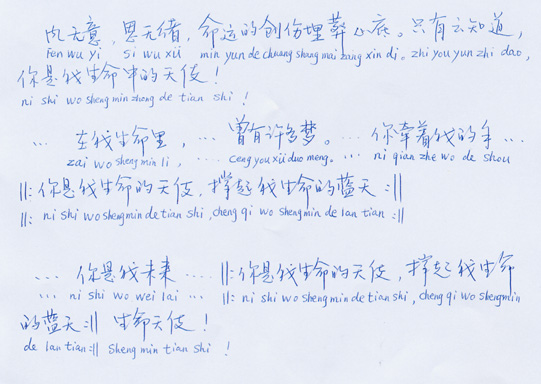 风无意，思无绪，命运的创伤埋葬心底。只有云知道，
Fen wu yi si wu xü min yun de chuang shang mai zang xin di。zhi you yun zhi dao,
你是我生命中的天使！
ni shi wo sheng min zhong de tian shi !
… 在我生命里，… 曾有许多梦。… 你牵着我的手 …
zai wo sheng min li, … ceng you xü duo meng。… ni qian zhe wo de shou
‖: 你是我生命的天使，撑起我生命的蓝天 :‖
‖: ni shi wo sheng min de tian shi, cheng qi wo sheng min de lan tian :‖
… 你是我未来 … ‖: 你是我生命的天使，撑起我生命
… ni shi wo wei lai … ‖: ni shi wo sheng min de tian shi, cheng qi wo sheng min
的蓝天 :‖ 生命天使！
de lan tian :‖ Sheng min tian shi !